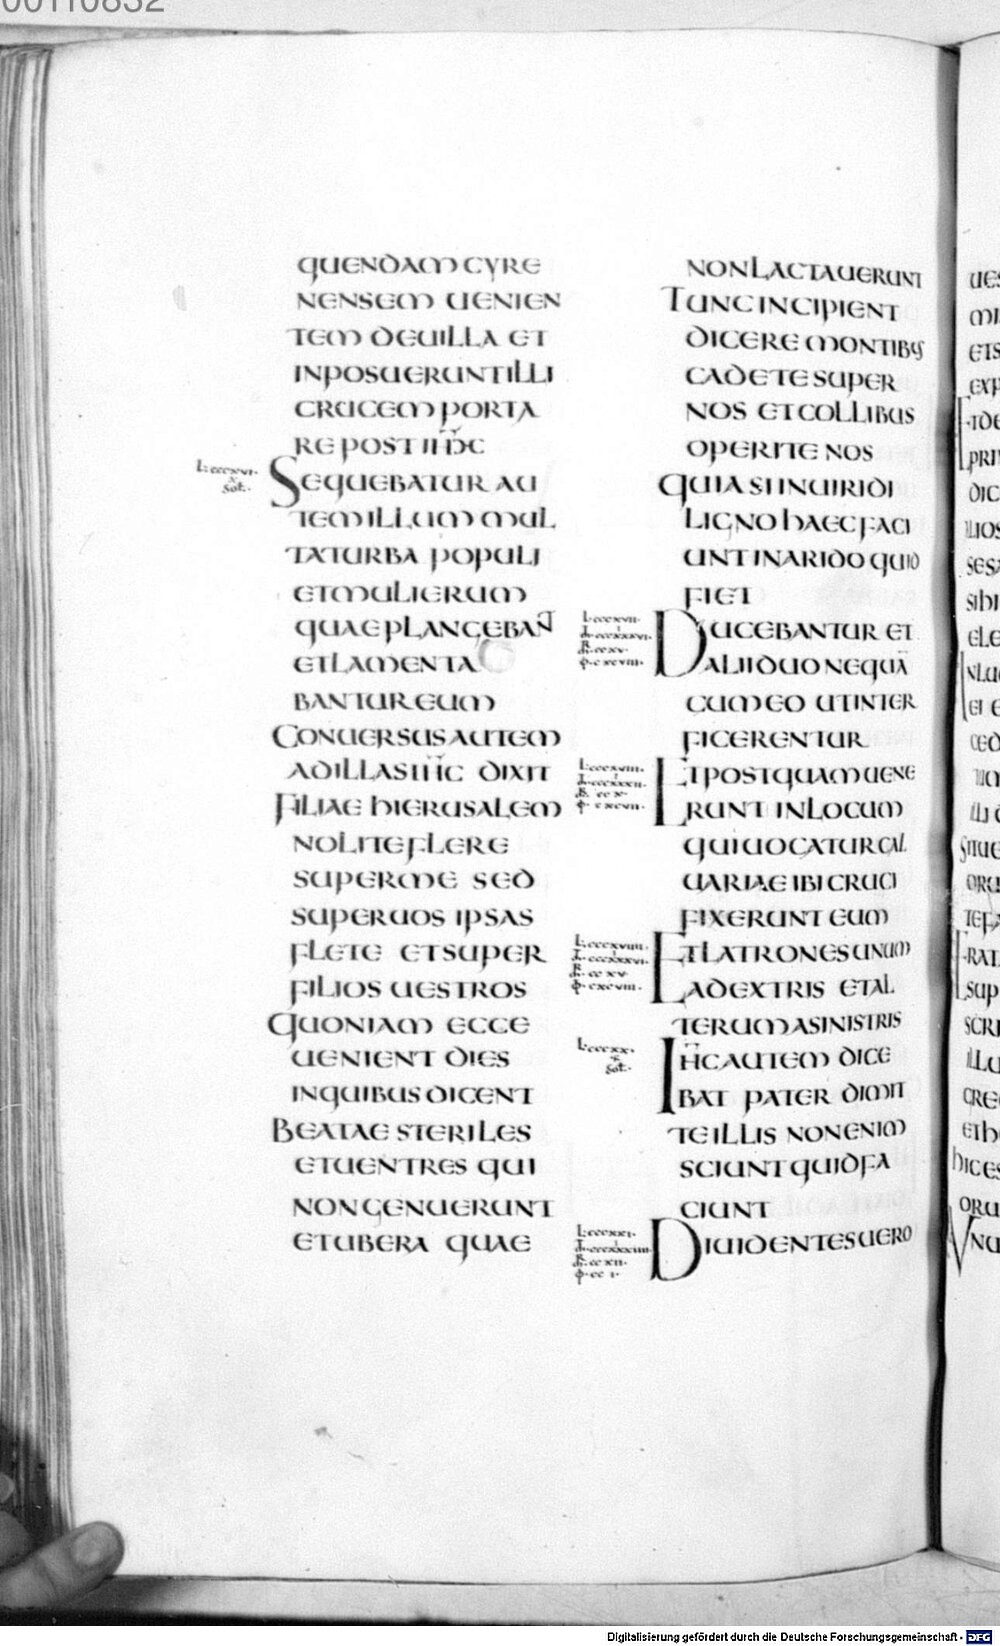 00110832
QUENDAM CYRE
NENSEM UENIEN
TEM DEUILLA ET
INPOSUERUNT ILLI
CRUCEM PORTA
RE POST IHC
L· cccxvi·
x
Sol·
SEQUEBATUR AU
TEM ILLUM MUL
TA TURBA POPULI
ET MULIERUM
QUAE PLANGEBANT
ET LAMENTA
BANTUR EUM
CONUERSUS AUTEM
AD ILLAS IHC DIXIT
FILIAE HIERUSALEM
NOLITE FLERE
SUPER ME SED
SUPER UOS IPSAS
FLETE ET SUPER
FILIOS UESTROS
QUONIAM ECCE
UENIENT DIES
IN QUIBUS DICENT
BEATAE STERILES
ET UENTRES QUI
NON GENUERUNT
ET UBERA QUAE
NON LACTAUERUNT
TUNC INCIPIENT
DICERE MONTIBUS
CADETE SUPER
NOS ET COLLIBUS
OPERITE NOS
QUIA SI IN UIRIDI
LIGNO HAEC FACI
UNT IN ARIDO QUID
FIET
L· cccxvii·
DUCEBANTUR ET
ALII DUO NEQUA
CUM EO UT INTER
FICERENTUR
L· cccxviii·
ET POSTQUAM UENE
RUNT IN LOCUM
QUI UOCATUR CAL
UARIAE IBI CRUCI
FIXERUNT EUM
L· cccxviiii·
ET LATRONES UNUM
A DEXTRIS ET AL
TERUM A SINISTRIS
L· cccxx·
x
Sol·
IHC AUTEM DICE
BAT PATER DIMIT
TE ILLIS NON ENIM
SCIUNT QUID FA
CIUNT
L· cccxxi·
DIUIDENTES UERO
Digitalisierung gefördert durch die Deutsche Forschungsgemeinschaft - DFG